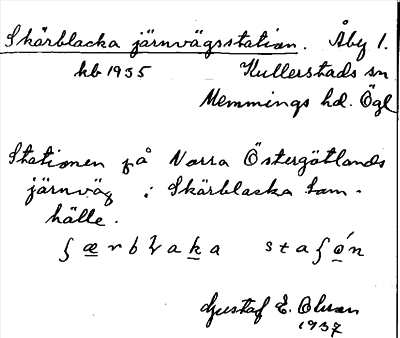 Skärblacka järnvägsstation. Åby 1.
hb 1935 Kullerstads sn
Memmings hd. Ögl
Stationen på Norra Östergötlands
järnväg i Skärblacka sam-
hälle.
Gustaf E. Olsson
1937